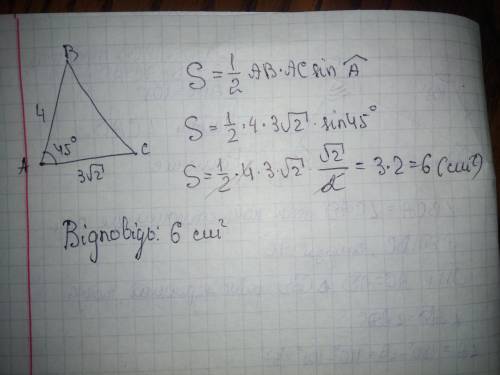 B
4
45°
A
C
3√2
S = 1/2 AB · AC sin Â
S = 1/2 · 4 · 3√2 · sin 45°
S = 1/2 · 4 · 3√2 · √2/2 = 3 · 2 = 6 (см²)
Відповідь: 6 см²